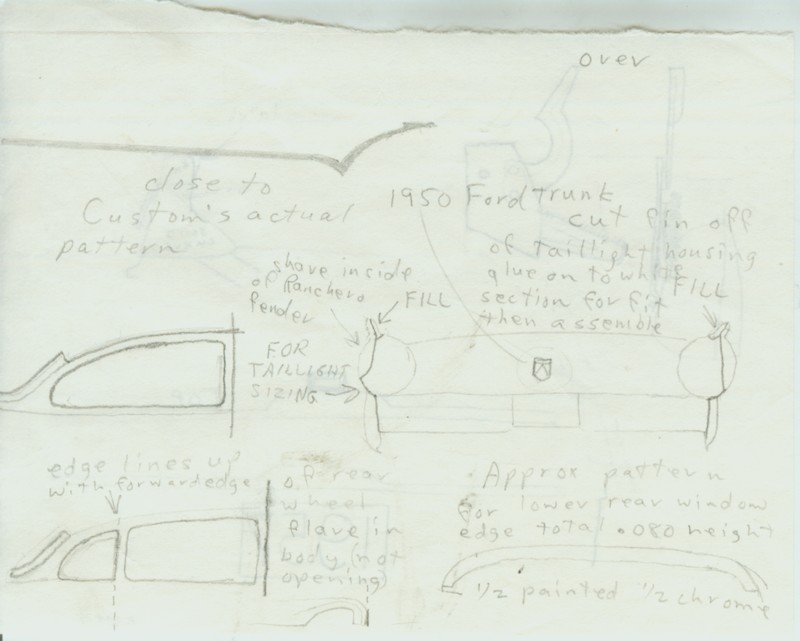 over
close to
Custom's actual
pattern
1950 Ford trunk
cut fin off
of taillight housing
glue on to white
section for fit
then assemble
shave inside
of Ranchero
fender
FILL
FILL
FOR
TAILLIGHT
SIZING
edge lines up
with forward edge
of rear
wheel
flare in
body (not
opening)
Approx pattern
for lower rear window
edge total .080 height
1/2 painted 1/2 chrome